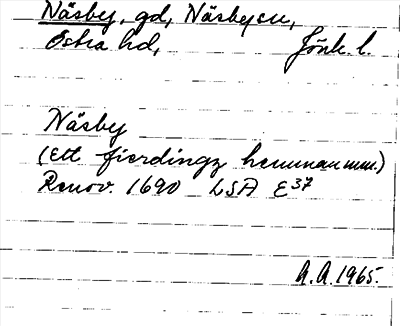 Näsby, gd, Näsby sn,
Östra hd, Jönk. l.
Näsby
(Ett fierdingz hemman mm.)
Renov. 1690 LSA E37
A.A. 1965.